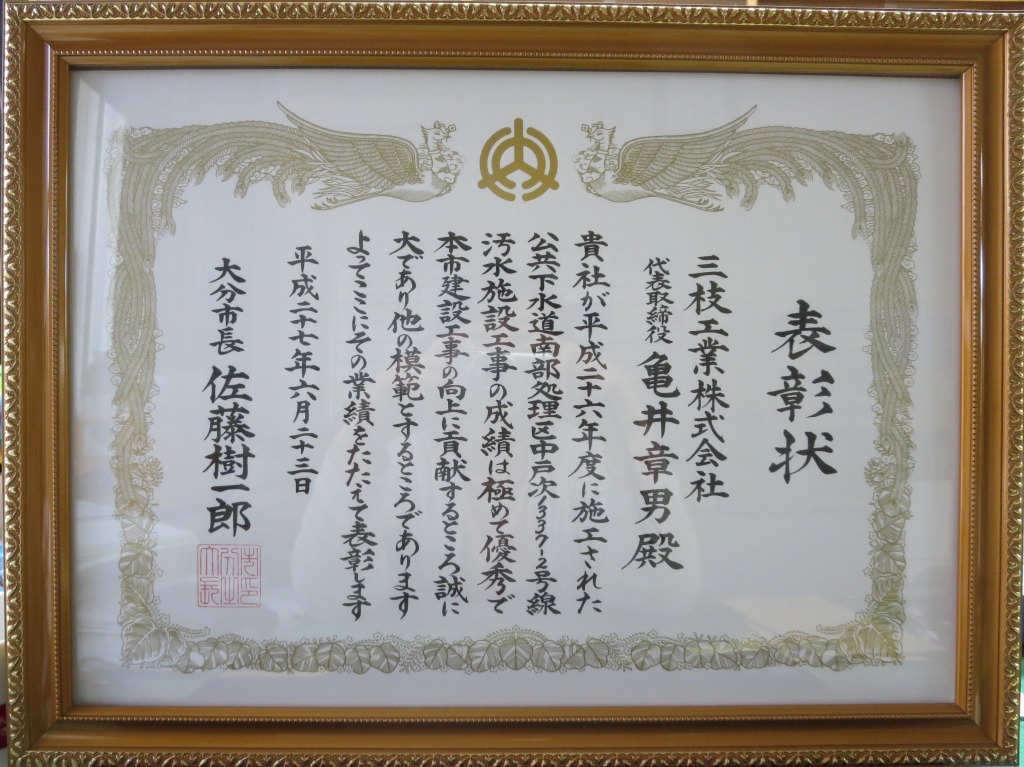 表彰状
三枝工業株式会社
代表取締役 亀井章男殿
貴社が平成二十六年度に施工された
公共下水道南部処理区中戸次1337-2号線
汚水施設工事の成績は極めて優秀で
本市建設工事の向上に貢献するところ誠に
大であり他の模範とするところであります
よってここにその業績をたたえて表彰します
平成二十七年六月二十三日
大分市長 佐藤樹一郎